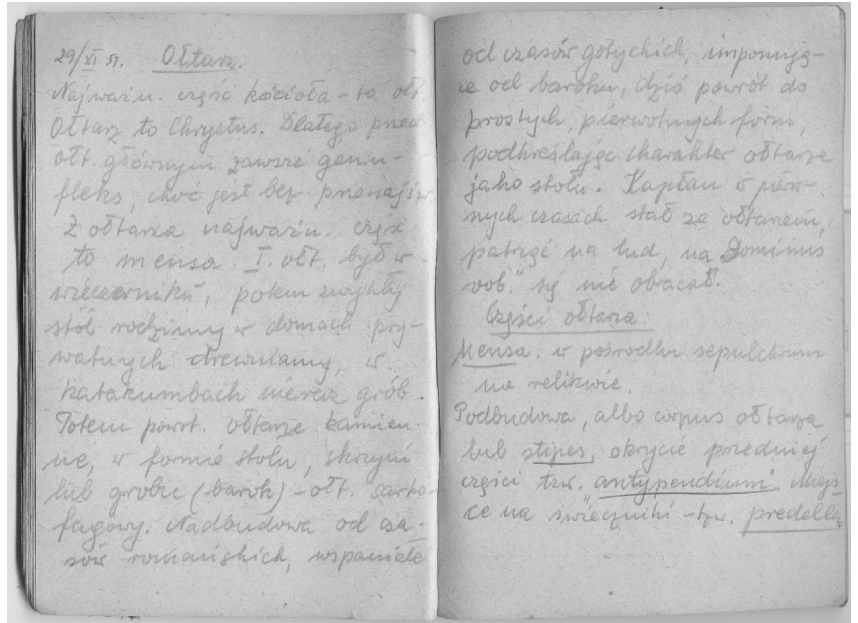 29/XI 51. Ołtarz.
Najważn. część kościoła – to ołt.
Ołtarz to Chrystus. Dlatego przed
ołt. głównym zawsze genu-
fleks, choć jest bez przenajśw.
Z ołtarza najważn. część
to mensa. I. ołt. był w
wieczerniku, potem zwykły
stół rodzinny w domach pry-
watnych drewniany, w
katakumbach nieraz grób.
Potem powst. ołtarze kamien-
ne, w formie stołu, skrzyni
lub grobu (barok) – ołt. sarko-
fagowy. Nadbudowa od cza-
sów romańskich, wspaniałe
od czasów gotyckich, imponują-
ce od baroku, dziś powrót do
prostych, pierwotnych form,
podkreślając charakter ołtarza
jako stołu. Kapłan w pierw-
nych czasach stał za ołtarzem,
patrząc na lud, na "Dominus
vob." się nie obracał.
Części ołtarza:
Mensa. w pośrodku sepulchrum
na relikwie.
Podbudowa, albo corpus ołtarza
lub stipes, okrycie przedniej
części tzw. antypendium. Miejs-
ce na świeczniki – tzw. predella